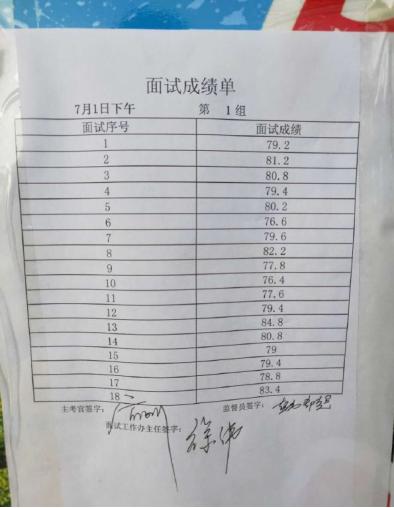 面试成绩单
7月1日下午 第 1 组
面试序号 面试成绩
1 79.2
2 81.2
3 80.8
4 79.4
5 80.2
6 76.6
7 79.6
8 82.2
9 77.8
10 76.4
11 77.6
12 79.4
13 84.8
14 80.8
15 79
16 79.4
17 78.8
18 83.4
主考官签字： 监督员签字：
面试工作办主任签字：